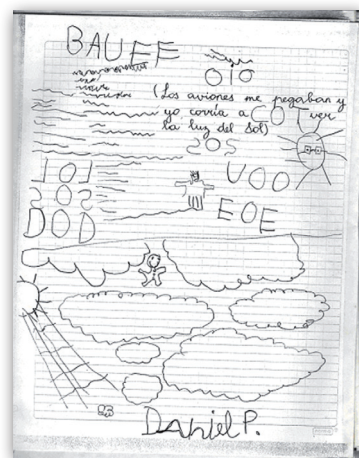 BAUFF
OIO
(Los aviones me pegaban y
yo corría a ver
la luz del sol)
COT
SOS
LOL
SOS
DOD
UOO
EOE
Daniel P.